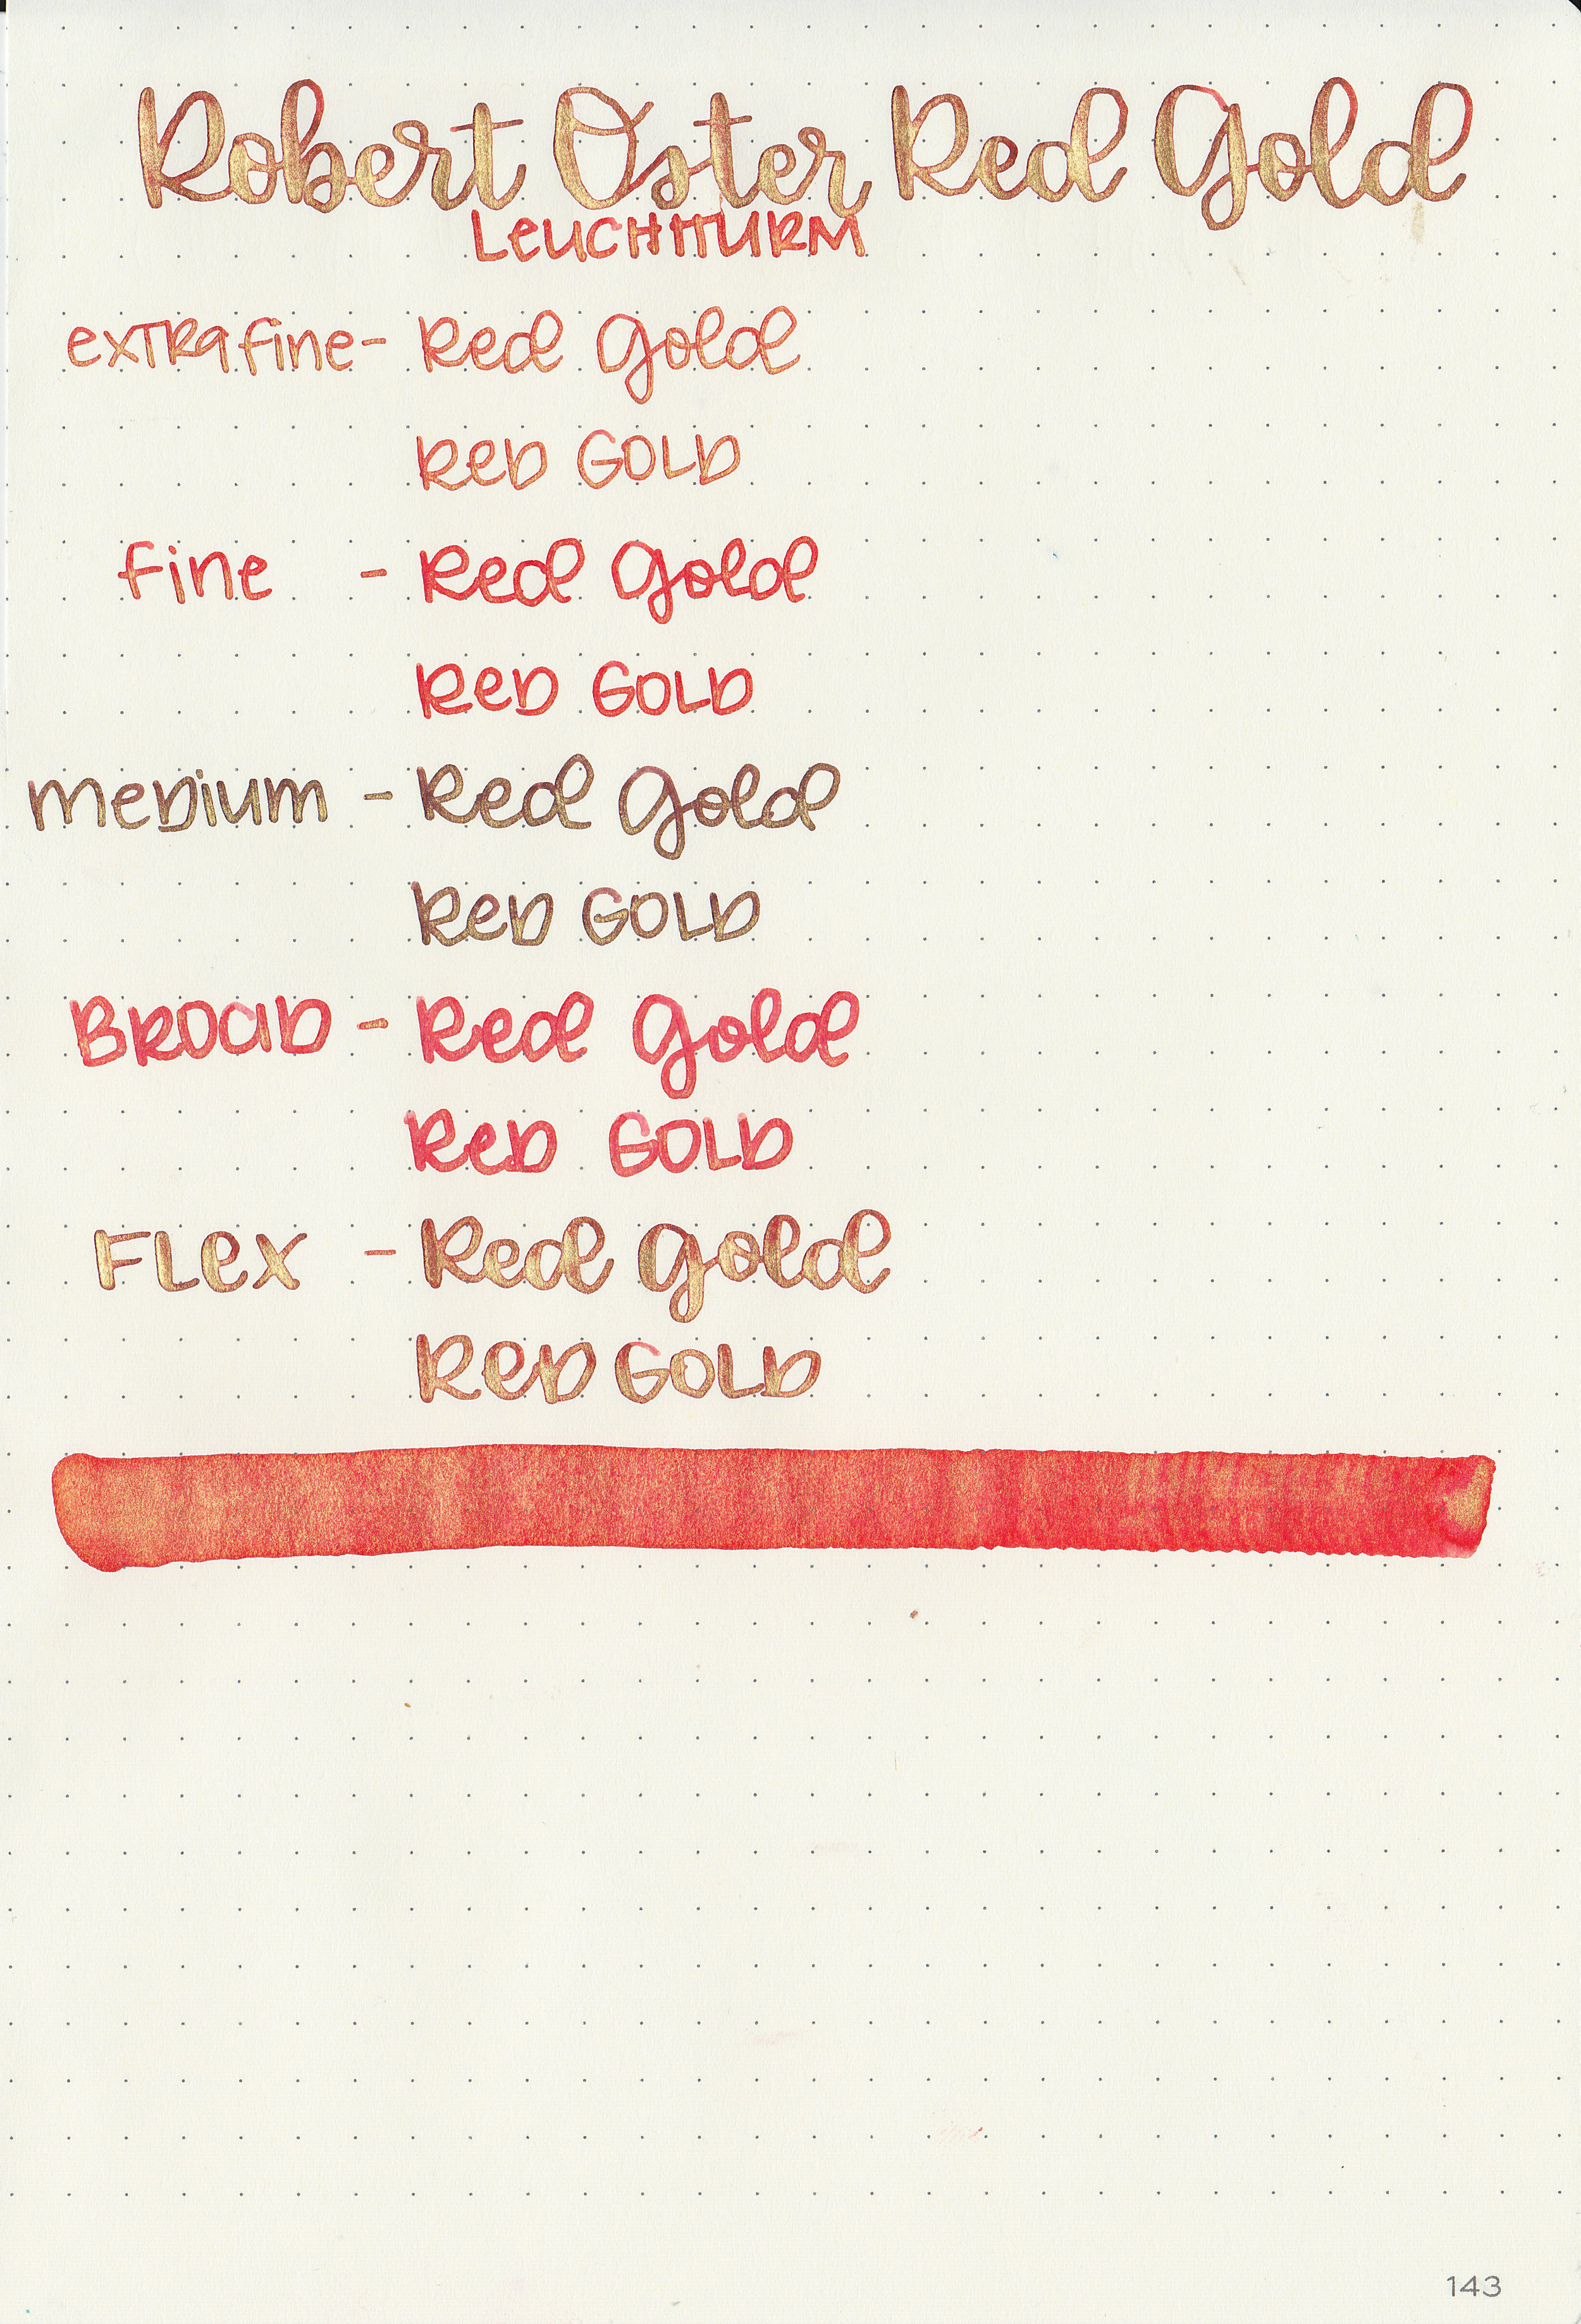 Robert Oster Red Gold
LEUCHTTURM
exTRa fine - Red Gold
Red GOLD
fine - Red Gold
Red GOLD
meDium - Red Gold
Red GOLD
BROaD - Red Gold
Red GOLD
FLex - Red Gold
Red GOLD
143